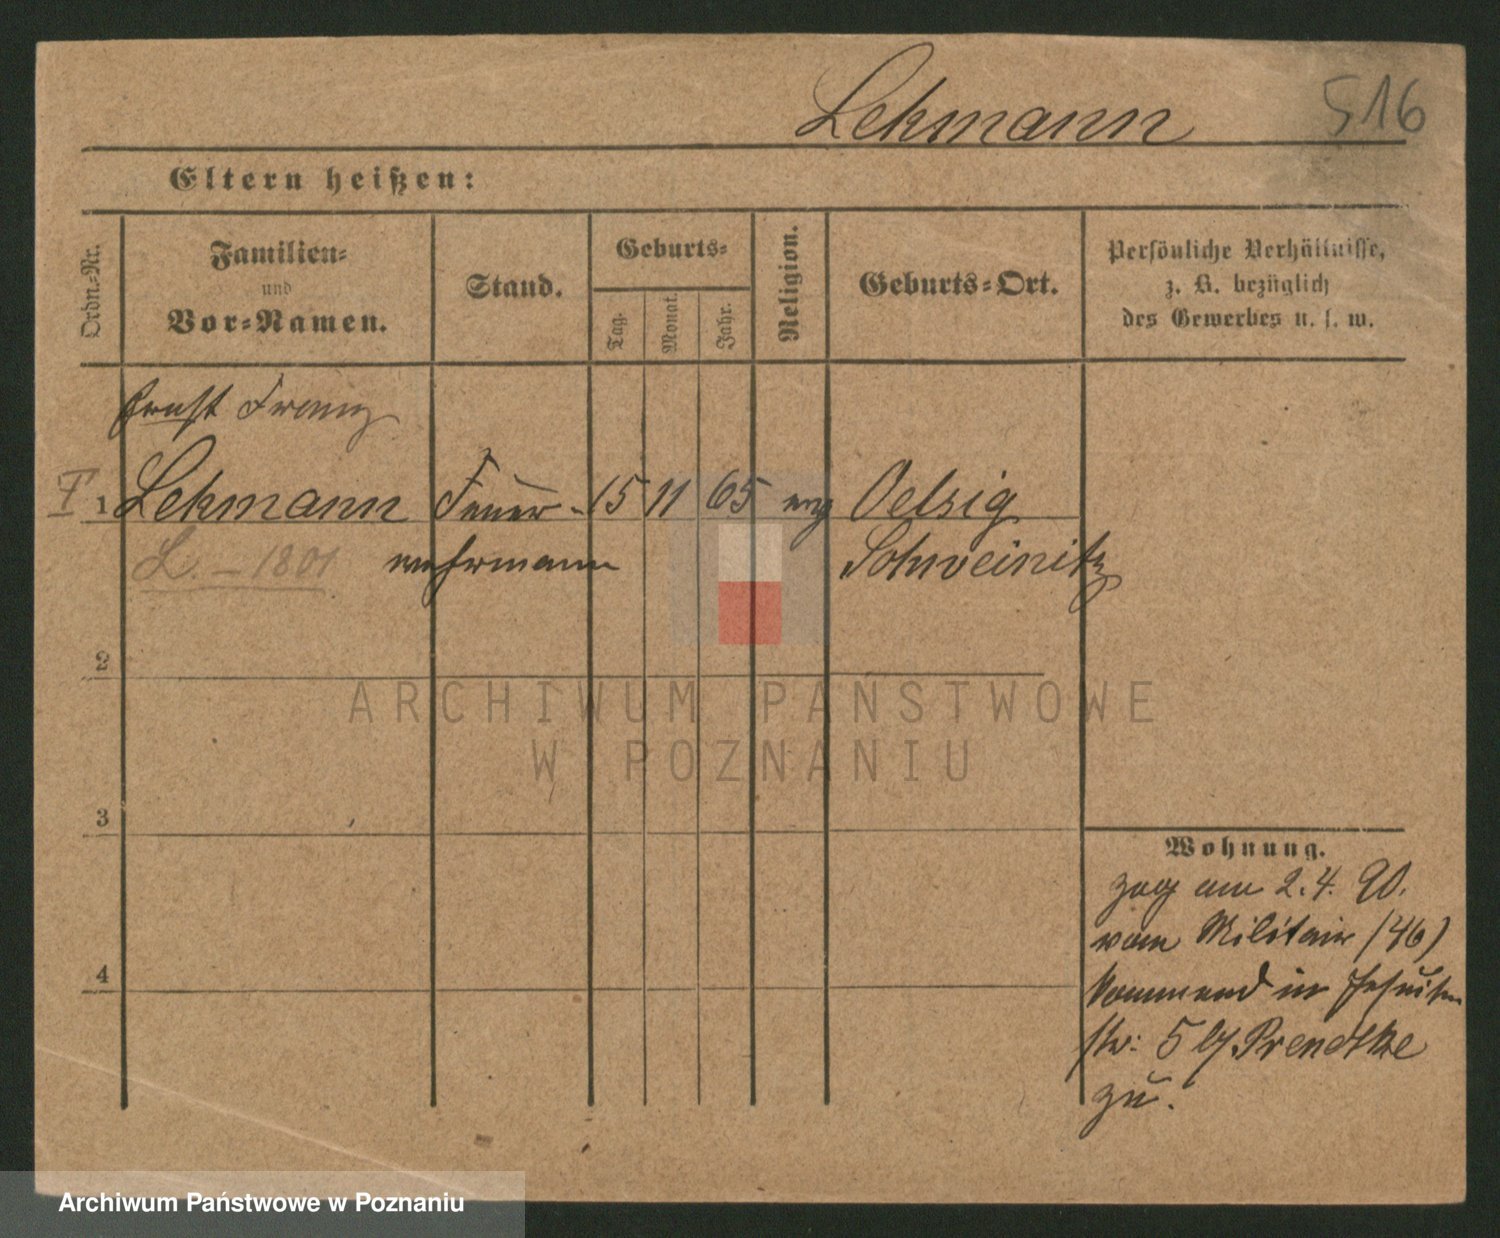 Lehmann 516
Eltern heißen:
Ordn.-Nr.
Familien-
und
Vor-Namen.
Stand.
Geburts-
Tag.
Monat.
Jahr.
Religion.
Geburts-Ort.
Persönliche Verhältnisse,
z. B. bezüglich
des Gewerbes u. s. w.
Ernst Franz
1 Lehmann Feuer- 15 11 65 evg Oelsig
L. - 1801 wehrmann Schweinitz
2
3
4
Wohnung.
zog am 2. 4. 90.
vom Militair (46)
kommend in Jesuiten
str: 5 b/ Prendtke
zu.
ARCHIWUM PAŃSTWOWE
W POZNANIU
Archiwum Państwowe w Poznaniu